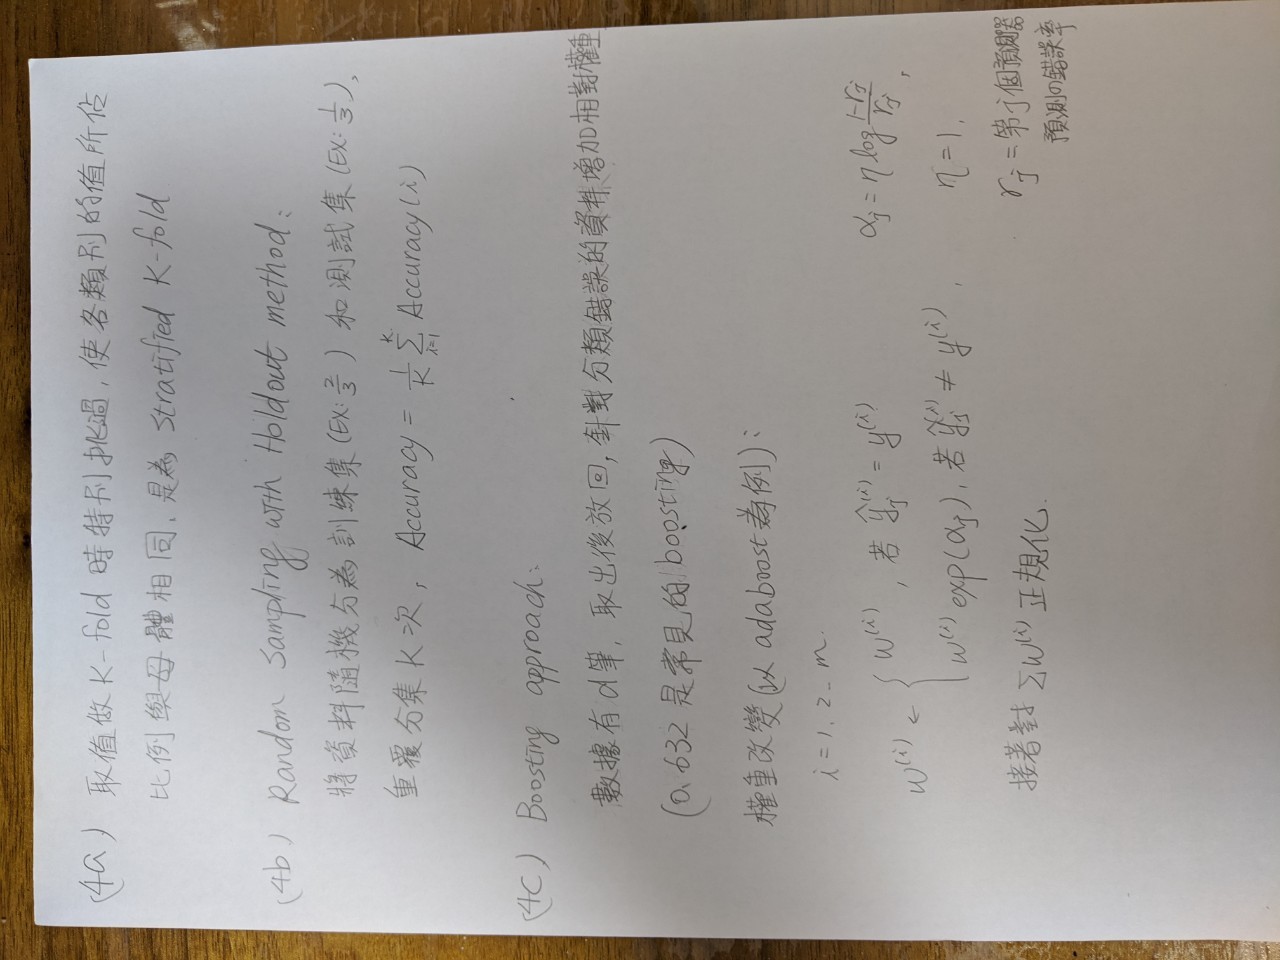 (4a) 取值做 K-fold 時特別挑過, 使各類別的值所佔
比例與母體相同, 是為 stratified K-fold
(4b) Random sampling with Holdout method:
將資料隨機分為訓練集 (Ex: 2/3) 和測試集 (Ex: 1/3),
重覆分集 K 次, Accuracy = 1/K Σ_{i=1}^{K} Accuracy(i)
(4c) Boosting approach:
數據有 d 筆, 取出後放回, 針對分類錯誤的資料增加相對權重
(0.632 是常見的 boosting)
權重改變 (以 adaboost 為例):
i = 1, 2 … m.
w^(i) ← { w^(i), 若 ŷ_j^(i) = y^(i)
w^(i) exp(α_j), 若 ŷ_j^(i) ≠ y^(i),
α_j = η log (1-r_j)/r_j,
η = 1,
r_j = 第 j 個預測器
預測の錯誤率
接著對 Σw^(i) 正規化.